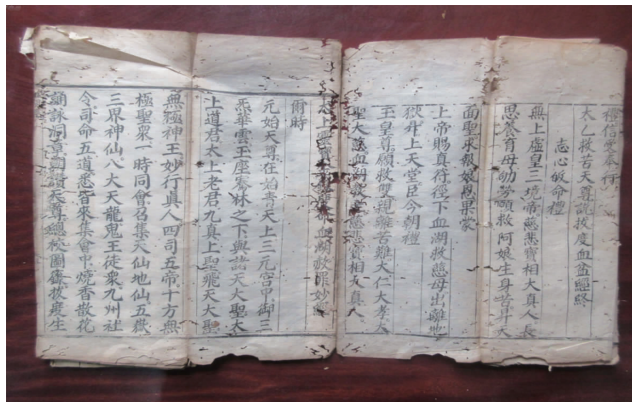 太乙救苦天尊說救度血盆經終
志心皈命禮
無上虛皇三境帝慈悲寶相大真人長
思養育母劬勞願救阿娘生身苦昇天
面聖求報娘恩果蒙
上帝賜真符徑下血湖救慈母出離地
獄升上天堂臣今朝禮
玉皇尊願救雙親離苦難大仁大孝大
聖大慈血湖教主慈悲寶相大真人
爾時
元始天尊在始青天上三元宮中御三
炁華雲玉座騫林之下與諸天大聖大
上道君太上老君九真上聖飛天大聖
無極神王妙行真人四司五帝十方無
極聖眾一時同會召集天仙地仙五嶽
三界神仙八大天龍鬼王徒眾九州社
令司命五道悉皆來集會中燒香散花
誦詠洞章
救度生